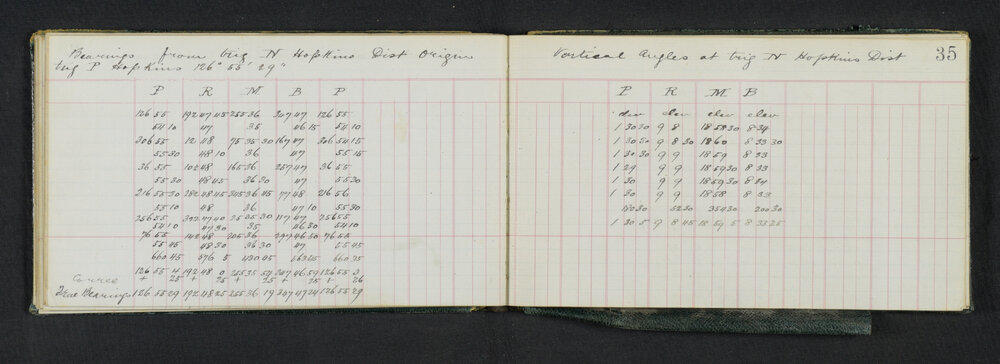 Bearings from trig N Hopkins Dist Origin
trig P Hopkins 126° 55' 29"
P R M B P
126 55 192 47 45 255 36 307 47 126 55
54 10 47 35 46 15 54 10
306 55 12 48 75 35 30 167 47 306 54 15
55 30 48 10 36 47 55 15
36 55 102 48 165 36 257 47 36 55
55 30 48 45 36 30 47 55 30
216 55 30 282 48 45 345 36 45 77 48 216 56
55 10 48 36 47 10 55 30
256 55 322 47 40 25 35 30 117 47 256 55
54 10 47 30 35 46 30 54 10
76 55 142 48 205 36 297 46 30 76 55
55 45 48 30 36 30 47 55 45
660 45 576 5 430 45 563 25 660 35
126 55 4 192 48 0 255 35 54 307 46 59 126 55 3
Correc + 25 + 25 + 25 + 25 + 26
True Bearings 126 55 29 192 48 25 255 36 19 307 47 24 126 55 29
Vertical Angles at trig N Hopkins Dist
35
P R M B
elev elev elev
1 30 30 9 8 18 58 30 8 34
1 30 30 9 8 30 18 60 8 33 30
1 30 30 9 9 18 59 8 33
1 29 9 9 18 59 30 8 33
1 30 9 9 18 59 30 8 34
1 30 9 9 18 58 8 33
180 30 52 30 354 30 200 30
1 30 5 9 8 45 18 59 5 8 33 25